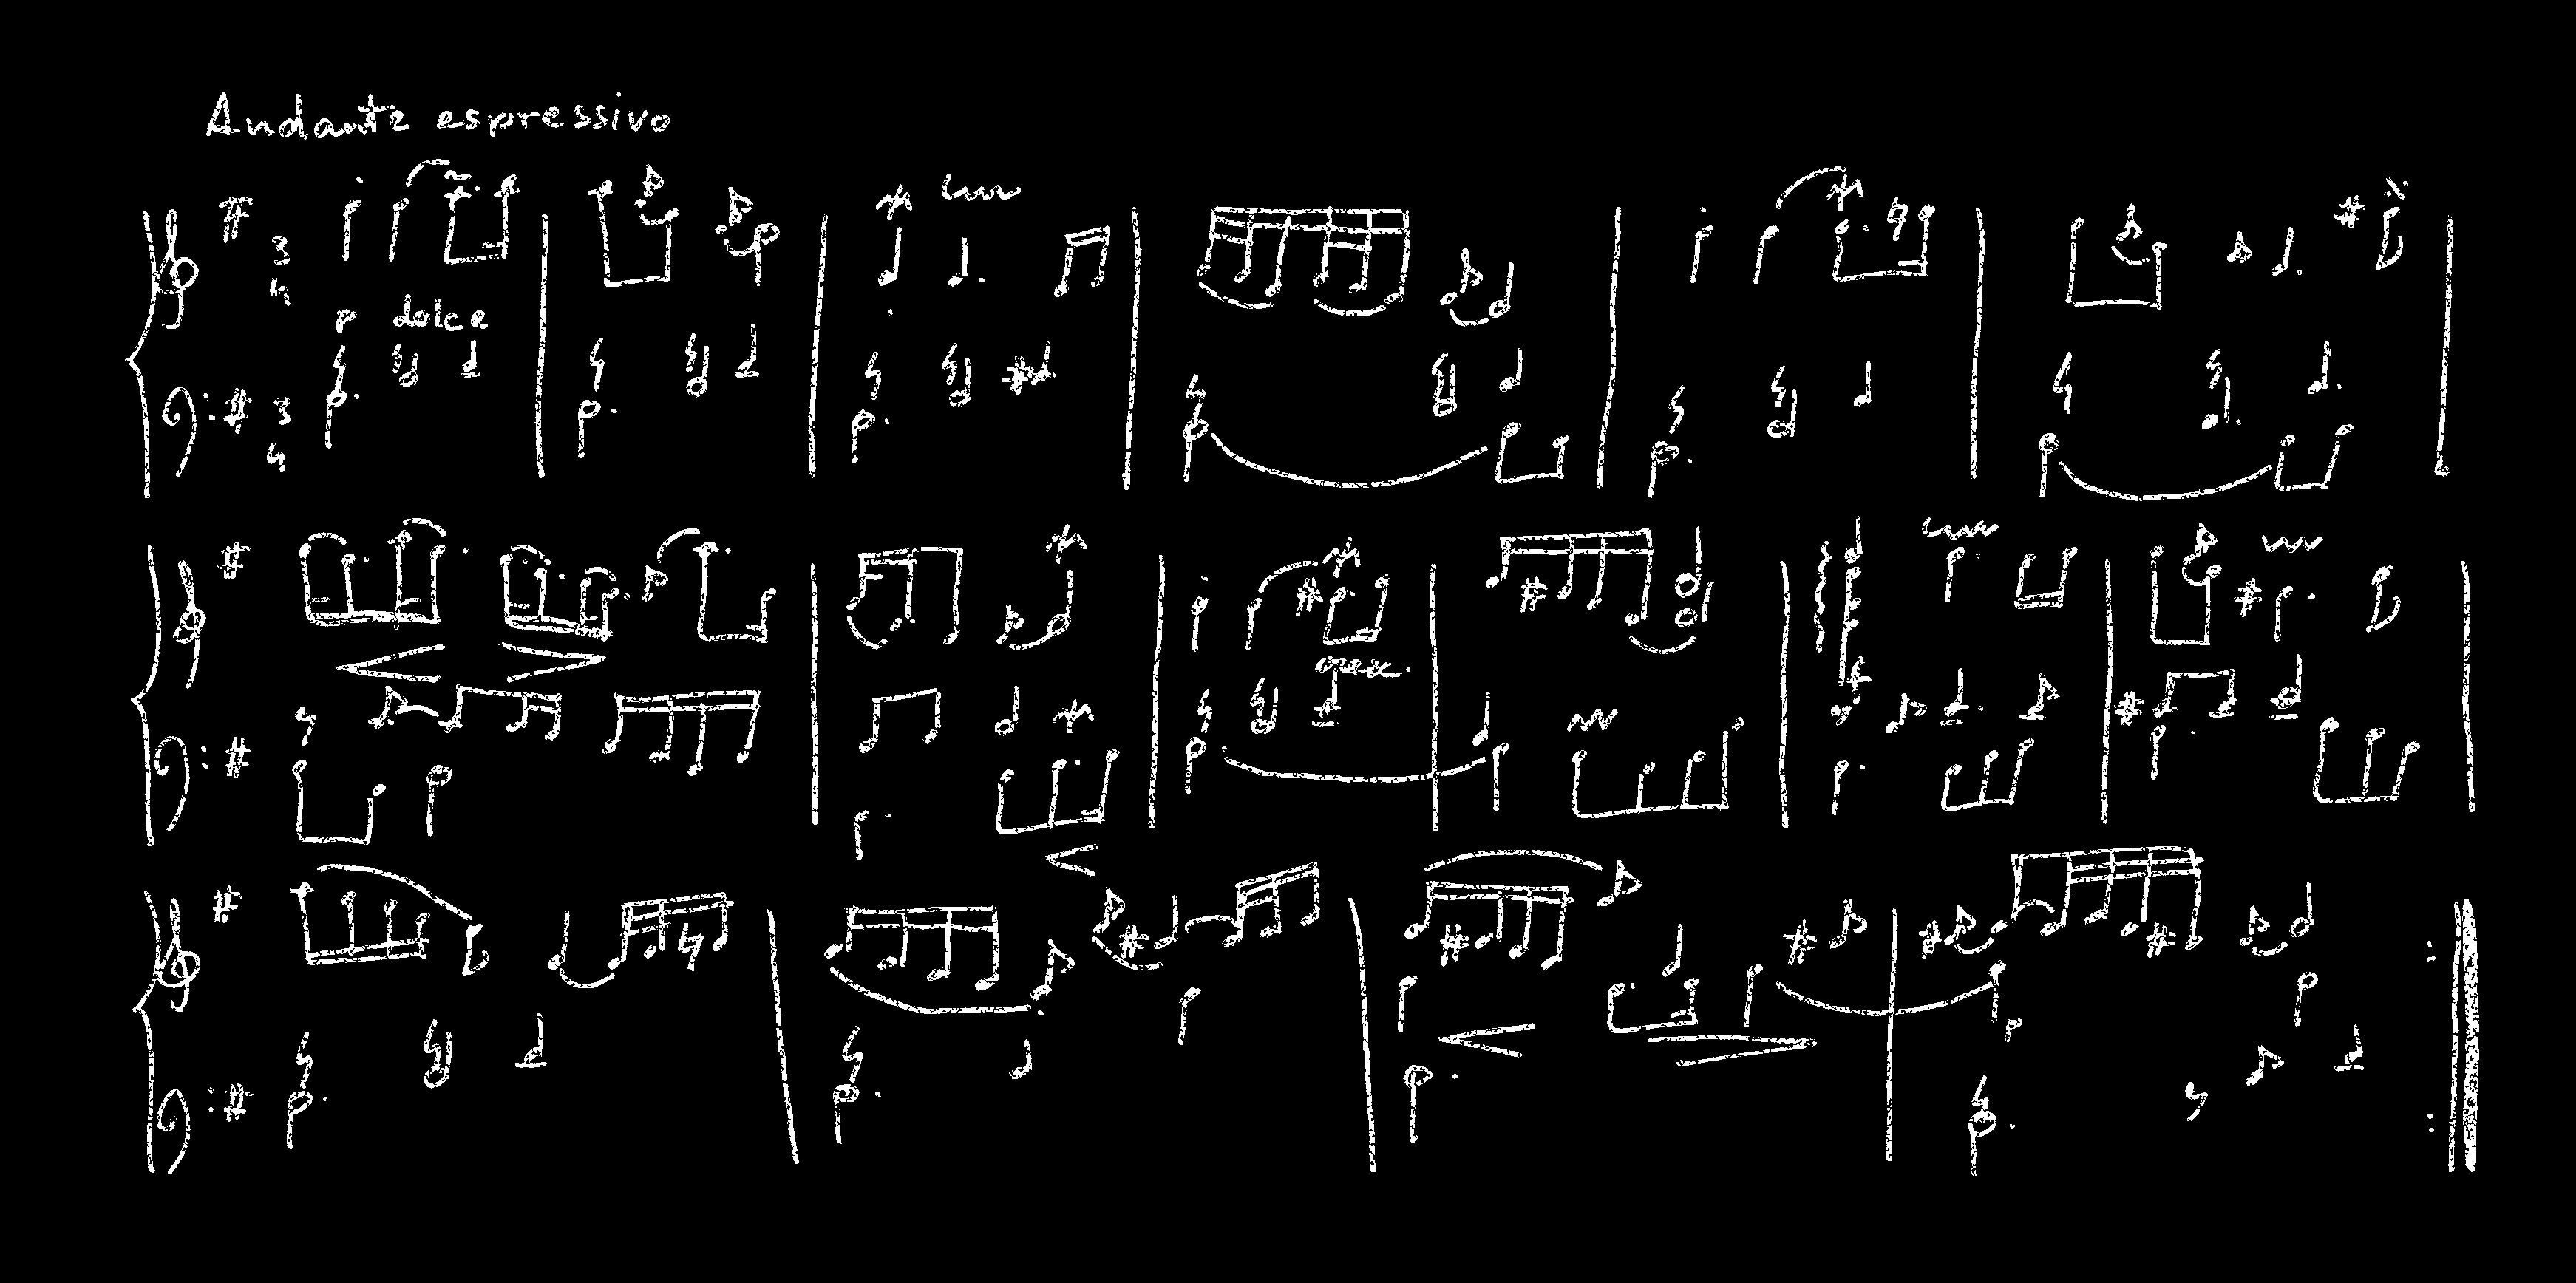 Andante espressivo
3
4
p dolce
3
4
cresc.
p